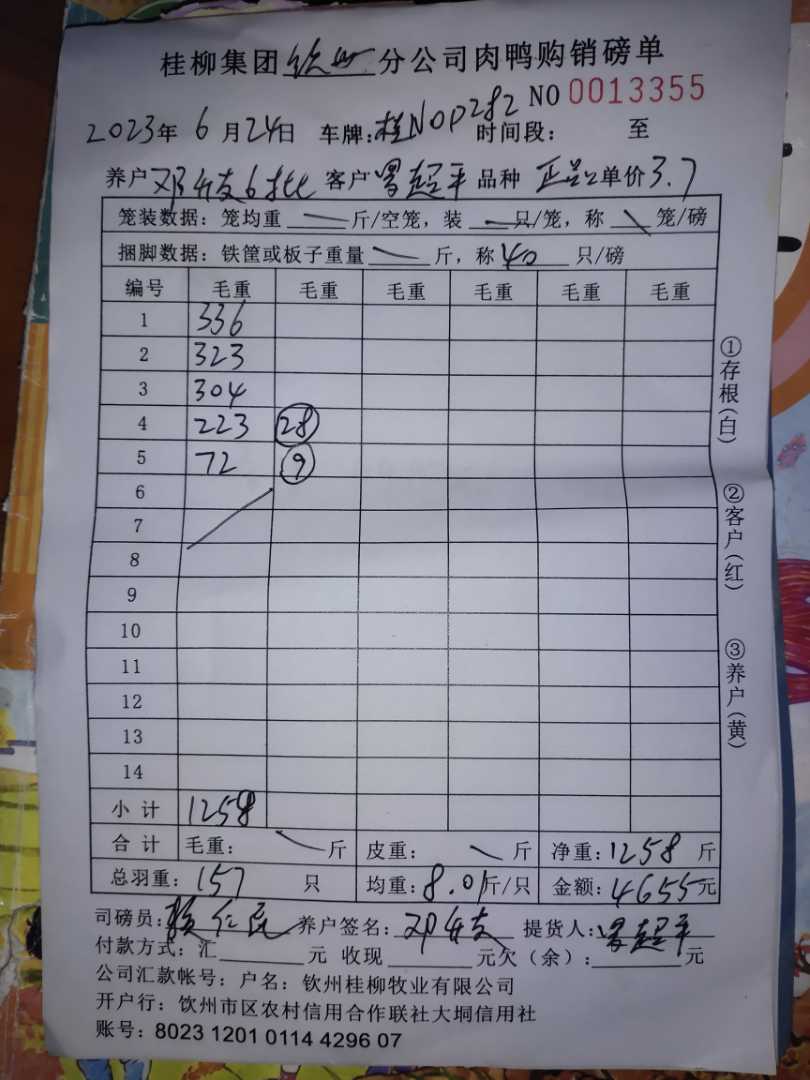 桂柳集团钦州分公司肉鸭购销磅单
NO 0013355
2023年6月24日 车牌:桂N0P282 时间段: 至
养户 邓 6批 客户 曾超平 品种 正品2 单价3.7
笼装数据:笼均重 斤/空笼,装 只/笼,称 笼/磅
捆脚数据:铁筐或板子重量 斤,称40 只/磅
编号 毛重 毛重 毛重 毛重 毛重 毛重
1 336
2 323
3 304
4 223 28
5 72 9
6
7
8
9
10
11
12
13
14
小计 1258
合计 毛重: 斤 皮重: 斤 净重:1258斤
总羽重:157 只 均重:8.01斤/只 金额:4655元
司磅员: 养户签名:邓 提货人:曾超平
付款方式:汇 元 收现 元欠(余): 元
公司汇款帐号:户名:钦州桂柳牧业有限公司
开户行:钦州市区农村信用合作联社大垌信用社
账号:8023 1201 0114 4296 07
①存根(白)
②客户(红)
③养户(黄)